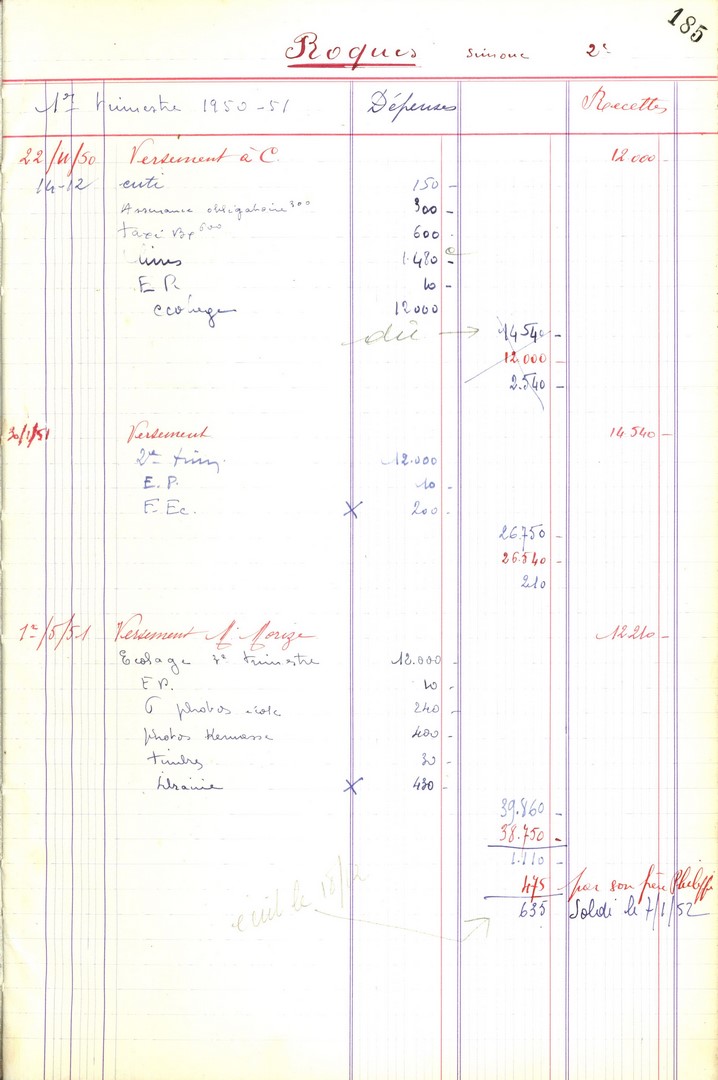 185
Roques Simone 2e
1er trimestre 1950-51 Dépenses Recettes
22/11/50 Versement à C. 12.000 -
14-12 cuti 150 -
Assurance obligatoire 300 300 -
taxi Bx 600 600 -
livres 1.480 -
E P. 10 -
écolage 12000
dû → 14540 -
12.000 -
2.540 -
30/1/51 Versement 14540 -
2e trim. 12.000
E. P. 10 -
F. Ec. X 200 -
26.750 -
26.540 -
210
1er/5/51 Versement 12210 -
Ecolage 3e trimestre 12.000 -
E P. 10 -
6 photos école 240 -
photos 400 -
timbres 30 -
librairie X 430 -
39.860 -
38.750 -
1.110 -
475 par son frère Philippe
635 Soldé le 7/1/52
écrit le 18/12